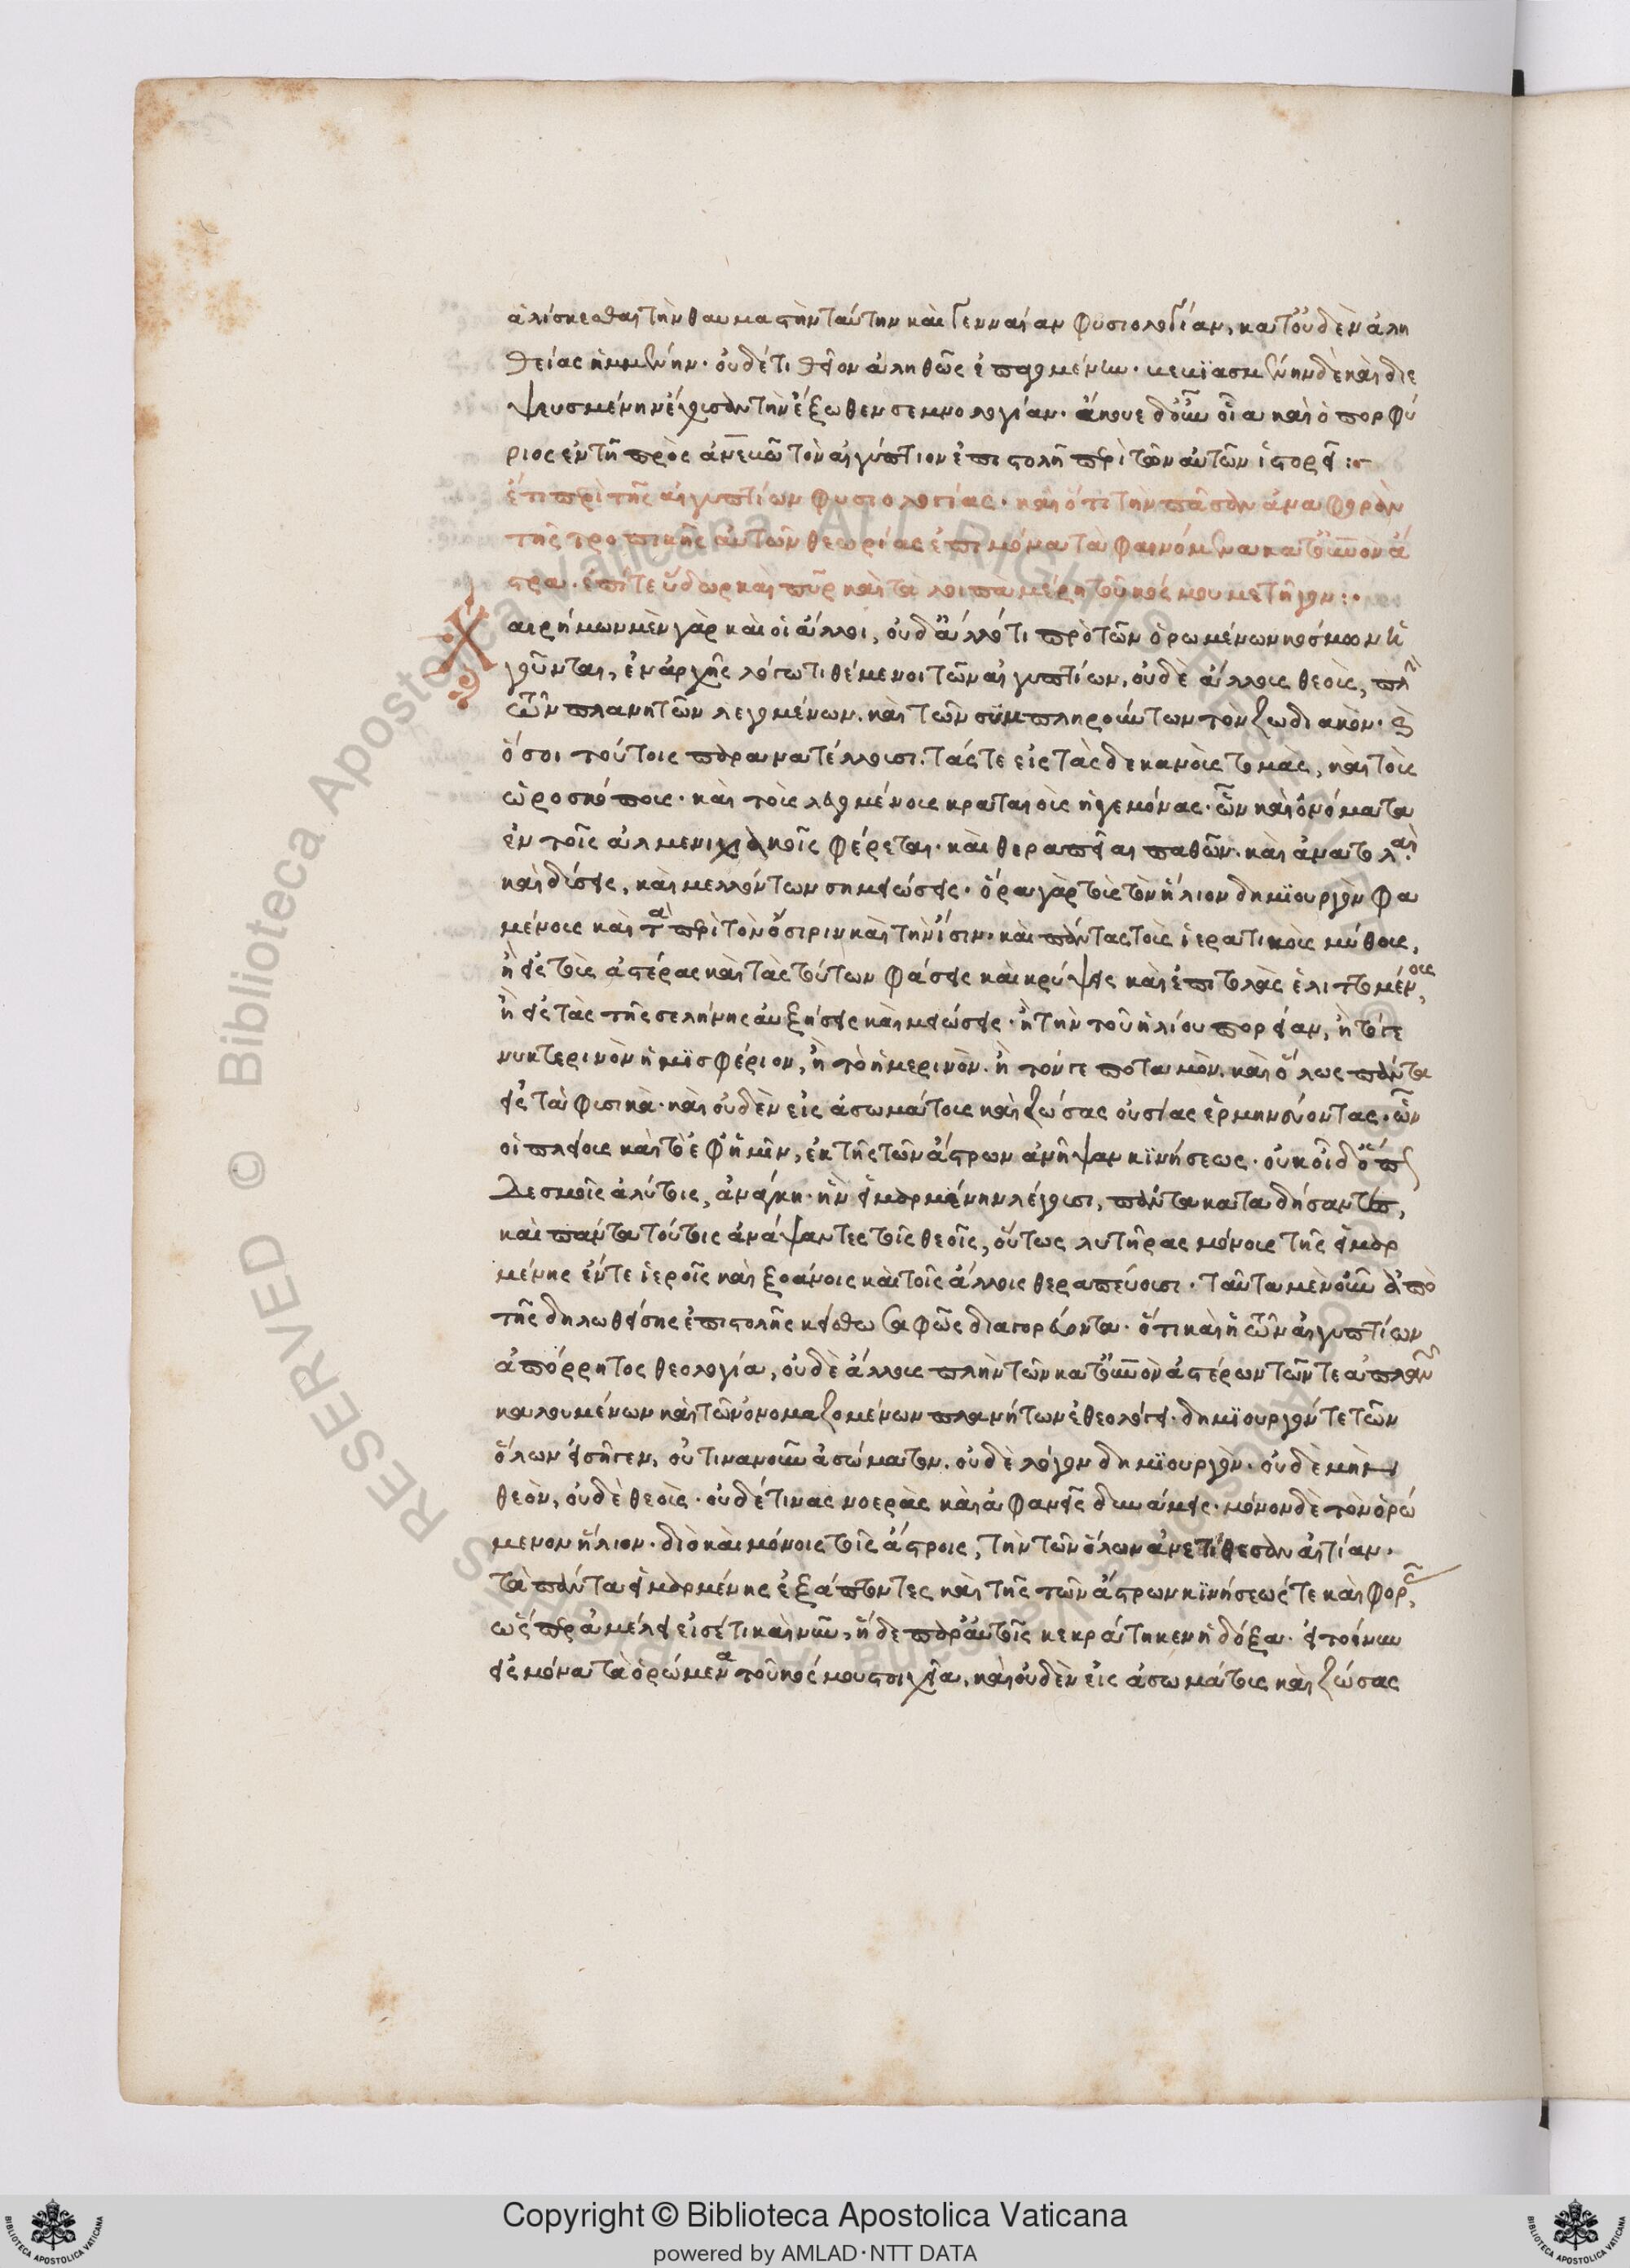 ἁλίσκεσθαι τὴν θαυμαστὴν ταύτην καὶ γενναίαν φυσιολογίαν, κατ' οὐδὲν ἀλη
θείας ἡμμένην. οὐδέ τι θεῖον ἀληθῶς ἐπαγομένην. κεκιασμένην δὲ καὶ διε
ψευσμένην ἔχουσαν τὴν ἔξωθεν σεμνολογίαν. ἄκουε δ' οὖν οἷα καὶ ὁ πορφύ
ριος ἐν τῇ πρὸς ἀνεβὼ τὸν αἰγύπτιον ἐπιστολῇ περὶ τῶν αὐτῶν ἱστορεῖ :
ἔτι περὶ τῆς αἰγυπτίων φυσιολογίας. καὶ ὅτι τὴν πᾶσαν ἀναφορὰν
τῆς τροπικῆς αὐτῶν θεωρίας ἐπὶ μόνα τὰ φαινόμενα κατ' οὐρανὸν ἄ
στρα. ἐπί τε ὕδωρ καὶ πῦρ καὶ τὰ λοιπὰ μέρη τοῦ κόσμου μετῆγον :
Χαιρήμων μὲν γὰρ καὶ οἱ ἄλλοι, οὐδ' ἄλλό τι πρὸ τῶν ὁρωμένων κόσμων ἡ
γοῦνται, ἐν ἀρχῆς λόγω τιθέμενοι τῶν αἰγυπτίων, οὐδὲ ἄλλους θεοὺς, πλὴν
τῶν πλανητῶν λεγομένων. καὶ τῶν συμπληρούντων τὸν ζωδιακὸν. καὶ
ὅσοι τούτοις παρανατέλλουσι. τάς τε εἰς τὰς δεκανοὺς τομὰς, καὶ τοὺς
ὡροσκόπους. καὶ τοὺς λεγομένους κραταιοὺς ἡγεμόνας. ὧν καὶ ὀνόματα
ἐν τοῖς ἀλμενιχιακοῖς φέρεται. καὶ θεραπεῖαι παθῶν. καὶ ἀνατολαὶ
καὶ δύσεις, καὶ μελλόντων σημειώσεις. ὅρα γὰρ τοὺς τὸν ἥλιον δημιουργὸν φα
μένους καὶ τὰ περὶ τὸν ὄσιριν καὶ τὴν ἶσιν. καὶ πάντας τοὺς ἱερατικοὺς μύθους,
ἢ εἰς τοὺς ἀστέρας καὶ τὰς τούτων φάσεις καὶ κρύψεις καὶ ἐπιτολὰς ἑλιττομένους,
ἢ εἰς τὰς τῆς σελήνης αὐξήσεις καὶ μειώσεις. ἢ τὴν τοῦ ἡλίου πορείαν, ἢ τό γε
νυκτερινὸν ἡμισφέριον, ἢ τὸ ἡμερινὸν. ἢ τόν γε ποταμὸν. καὶ ὅλως πάντα
εἰς τὰ φυσικὰ. καὶ οὐδὲν εἰς ἀσωμάτους καὶ ζώσας οὐσίας ἑρμηνεύοντας. ὧν
οἱ πλείους καὶ τὸ ἐφ' ἡμῖν, ἐκ τῆς τῶν ἄστρων ἀνῆψαν κινήσεως. οὐκ οἶδ' ὅπως
δεσμοῖς ἀλύτοις, ἀνάγκη. ἣν εἱμαρμένην λέγουσι, πάντα καταδήσαντες,
καὶ πάντα τούτοις ἀνάψαντες τοῖς θεοῖς, οὕτως λυτῆρας μόνους τῆς εἱμαρ
μένης ἔν τε ἱεροῖς καὶ ξοάνοις καὶ τοῖς ἄλλοις θεραπεύουσι. ταῦτα μὲν οὖν ἀπὸ
τῆς δηλωθείσης ἐπιστολῆς κείσθω σαφῶς διαγορεύοντα. ὅτι καὶ ἡ τῶν αἰγυπτίων
ἀπόρρητος θεολογία, οὐδὲ ἄλλους πλὴν τῶν κατ' οὐρανὸν ἀστέρων τῶν τε ἀπλανῶν
καλουμένων καὶ τῶν ὀνομαζομένων πλανήτων ἐθεολόγει. δημιουργόν τε τῶν
ὅλων εἰσῆγεν, οὔ τινα νοῦν ἀσώματον. οὐδὲ λόγον δημιουργὸν. οὐδὲ μὴν
θεὸν, οὐδὲ θεοὺς. οὐδέ τινας νοερὰς καὶ ἀφανεῖς δυνάμεις. μόνον δὲ τὸν ὁρώ
μενον ἥλιον. διὸ καὶ μόνοις τοῖς ἄστροις, τὴν τῶν ὅλων ἀνετίθεσαν αἰτίαν.
τὰ πάντα εἱμαρμένης ἐξάπτοντες καὶ τῆς τῶν ἄστρων κινήσεώς τε καὶ φορᾶς,
ὥσπερ ἀμέλει εἰσέτι καὶ νῦν, ἥδε παρ' αὐτοῖς κεκράτηκεν ἡ δόξα. εἰ τοίνυν
εἰς μόνα τὰ ὁρώμενα τοῦ κόσμου στοιχεῖα, καὶ οὐδὲν εἰς ἀσωμάτους καὶ ζώσας
Biblioteca Apostolica Vaticana
Copyright © Biblioteca Apostolica Vaticana
powered by AMLAD·NTT DATA